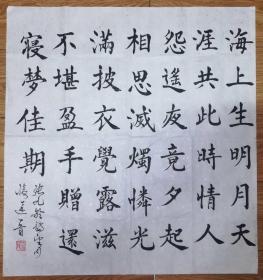 海上生明月天
涯共此時情人
怨遙夜竟夕起
相思滅燭憐光
滿披衣覺露滋
不堪盈手贈還
寢夢佳期
張九齡望月